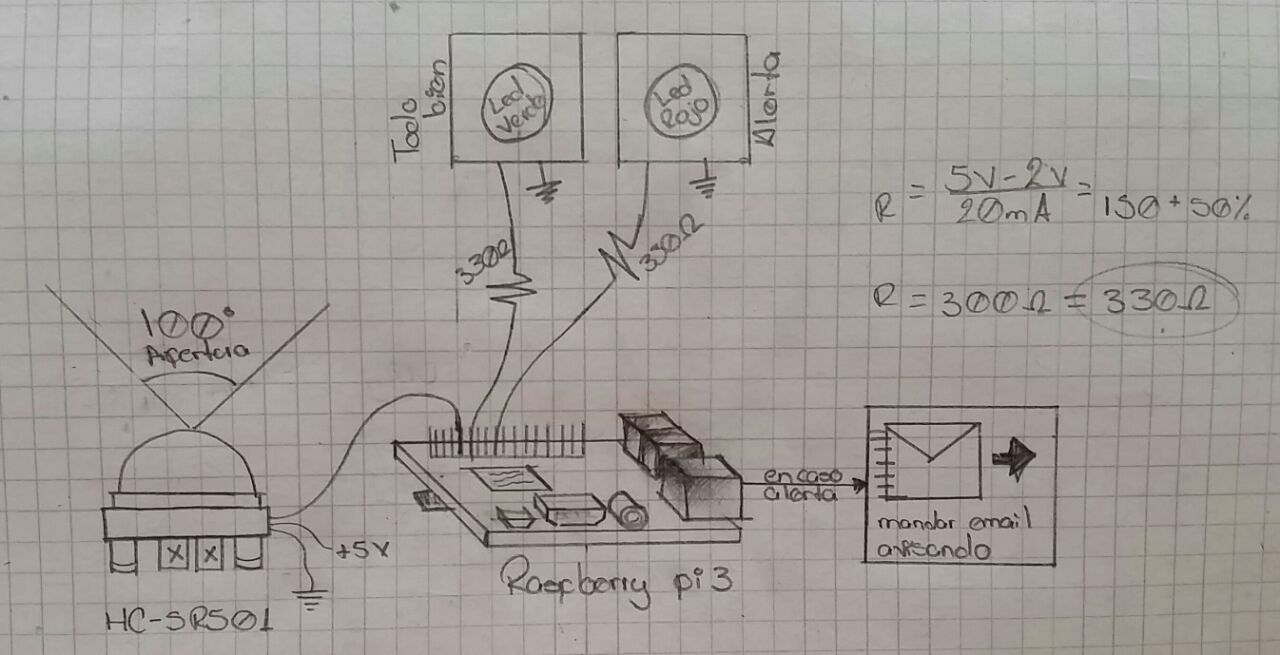 Todo
bien
Led
verde
Led
Rojo
Alerta
330Ω
330Ω
R = 5V-2V / 20mA = 150 + 50%
R = 300Ω = 330Ω
100°
Apertura
+5V
HC-SR501
Raspberry pi 3
en caso
alerta
mandar email
avisando